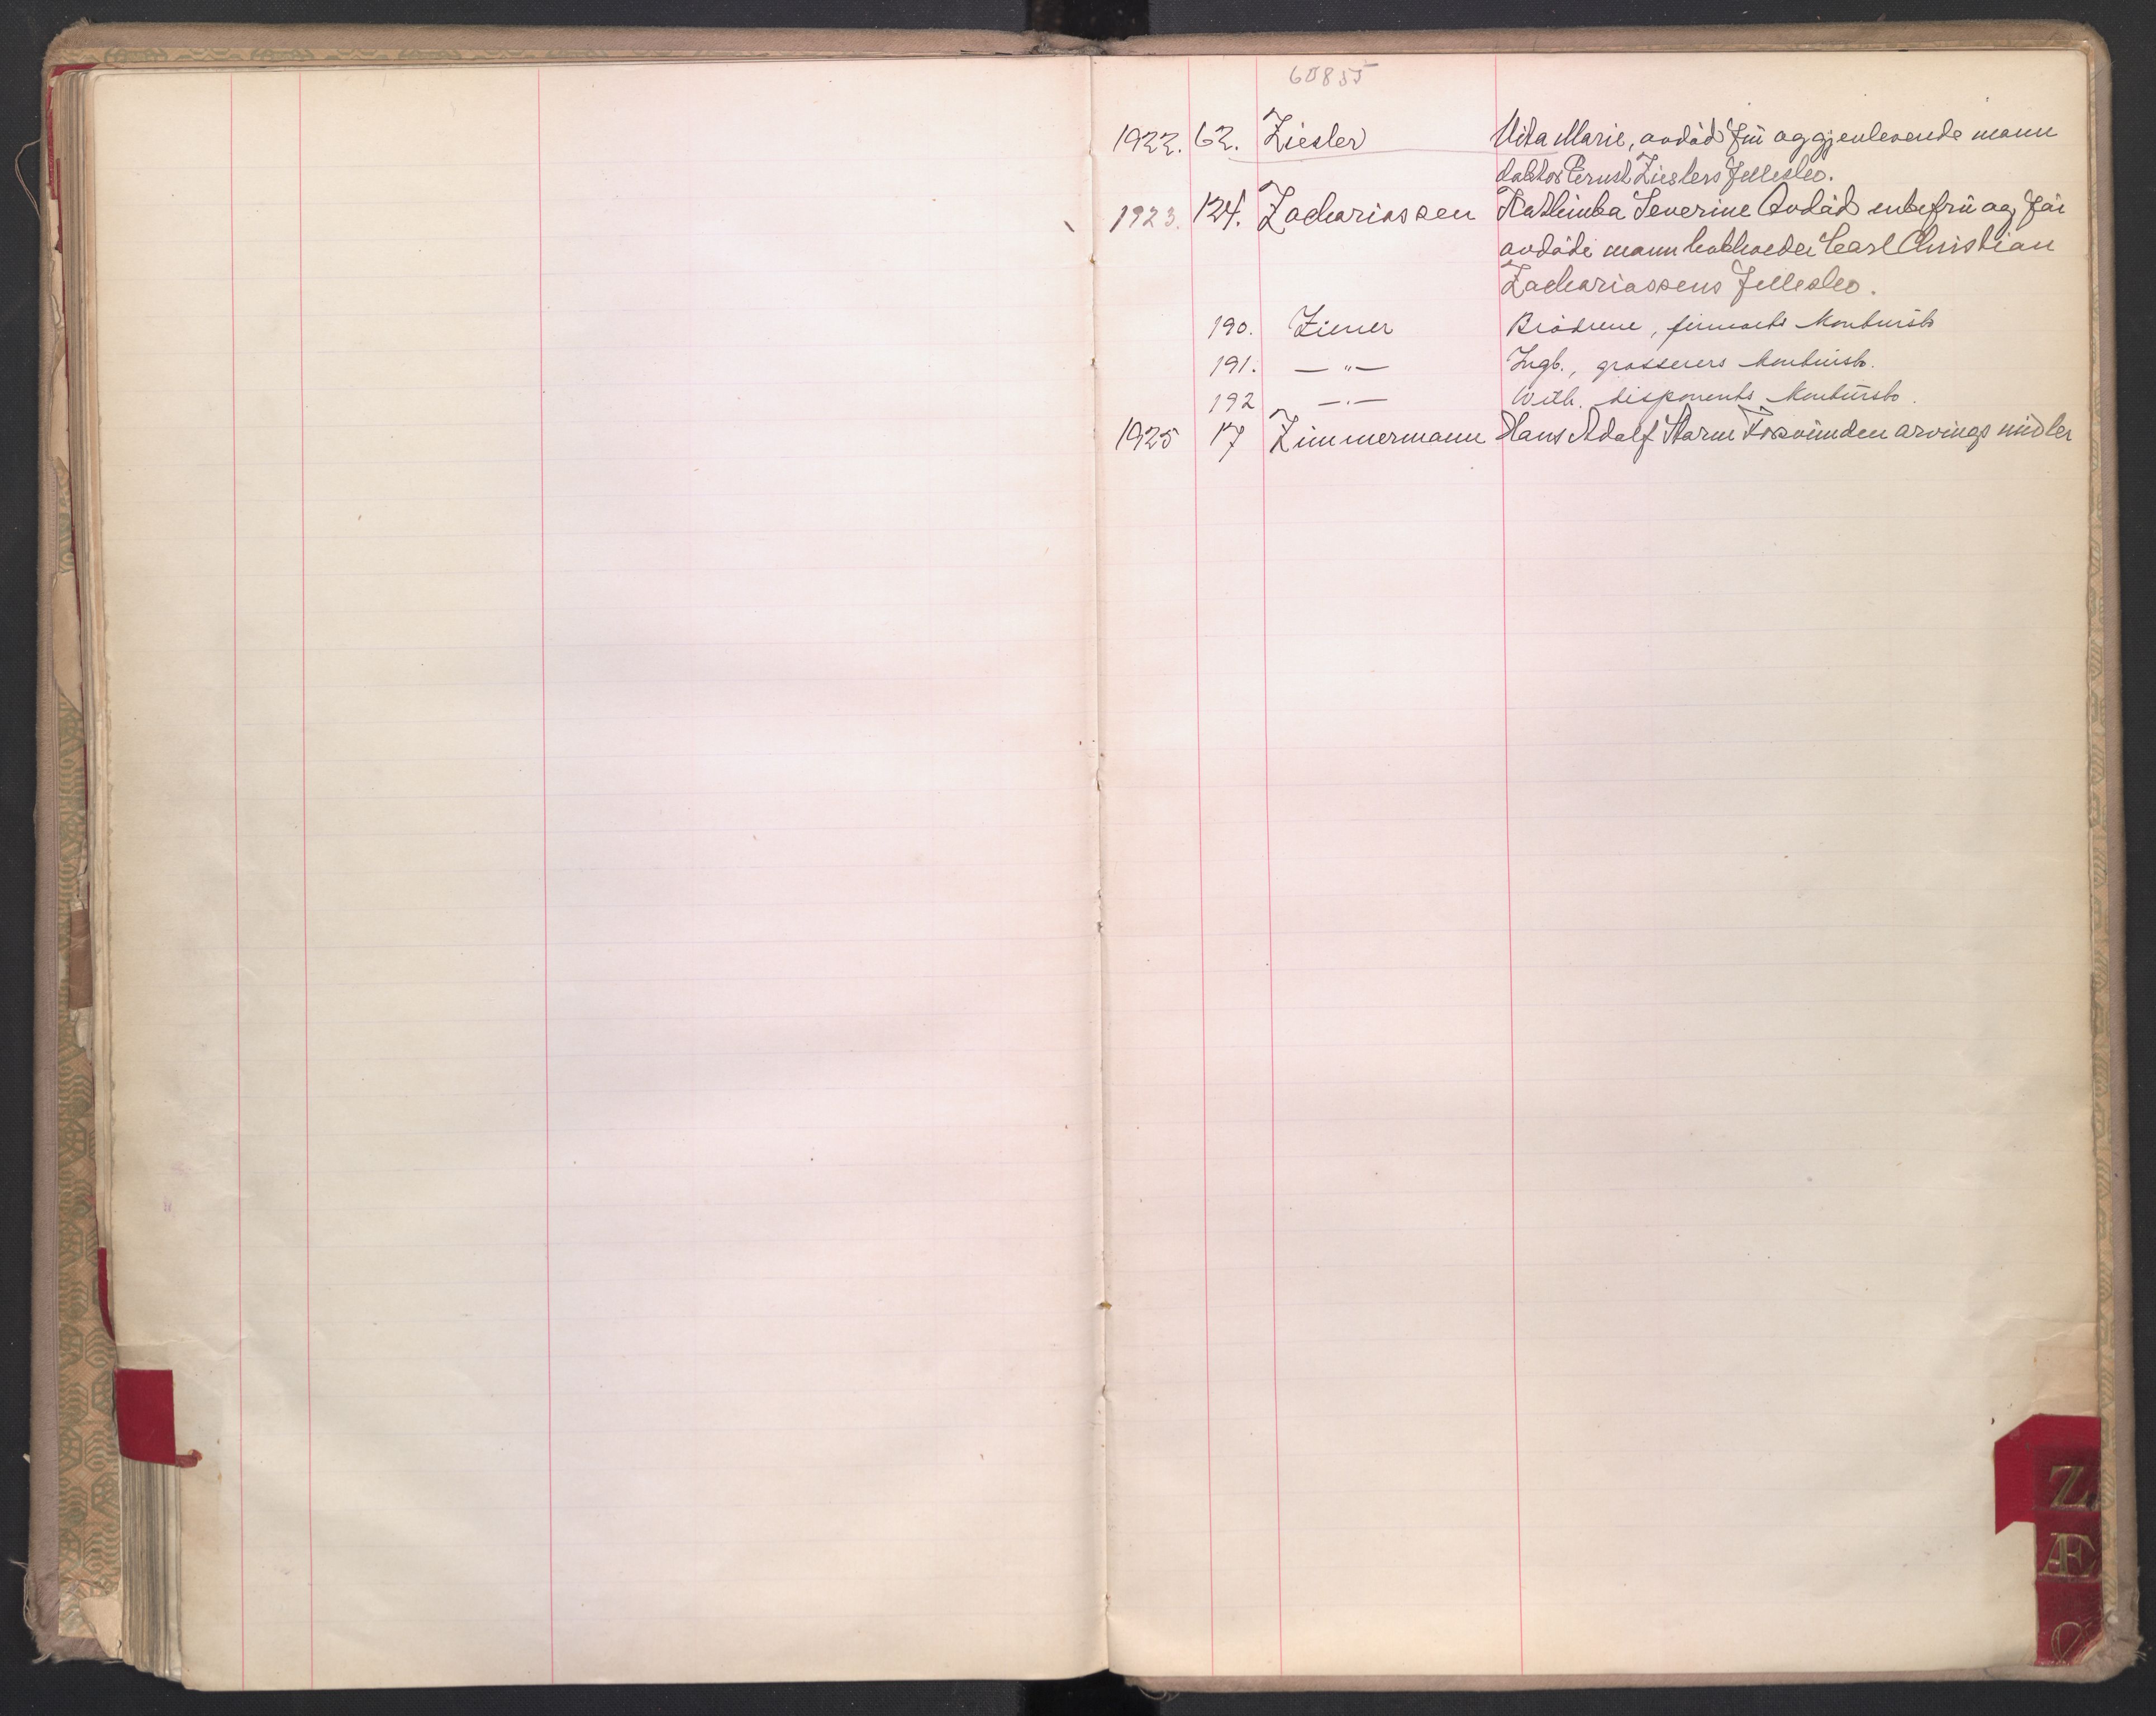 60855
1922. 62. Ziesler Vida Marie, avdöd frü og gjenlevende mann
doktor Ernst Zieslers fellesbo.
1923. 124. Zachariassen Severine Avdöd enkefrü og för
avdöde mann Carl Christian
Zachariassens fellesbo.
190. Ziener Brödrene, firmaets konkursbo
191. — " — Ingb., grosserers konkursbo.
192 — . — Wilh. disponents konkursbo.
1925 17 Zimmermann Hans Adolf Storm Forsvunden arvings midler
Z
Æ
Ø